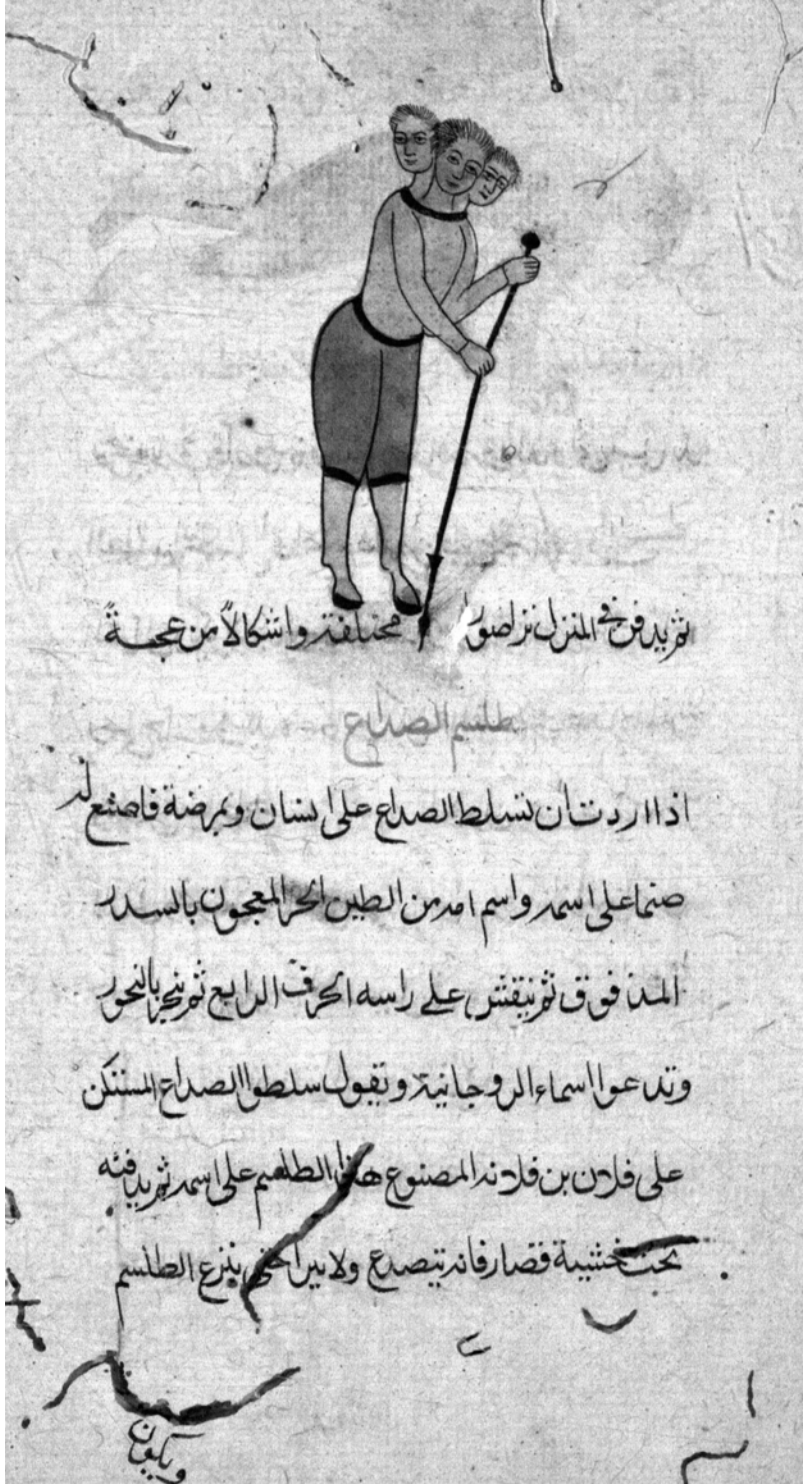 ثم يدفن في المنزل نرا صورا مختلفة واشكالاً من عجة
طلسم الصداع
اذا اردت ان تسلط الصداع على انسان وتمرضة فاصنع له
صنما على اسمه واسم امه من الطين الحر المعجون بالسدر
المدفوق ثم ينقش على راسه الحرف الرابع ثم يبخر بالبخور
وتدعوا اسماء الروحانية وتقول سلطوا الصداع المستنكن
على فلان بن فلانه المصنوع هذا الطلسم على اسمه ثم يدافنه
تحت خشبة قصار فانه يتصدع ولا يبرا حتى ينزع الطلسم
ويكون